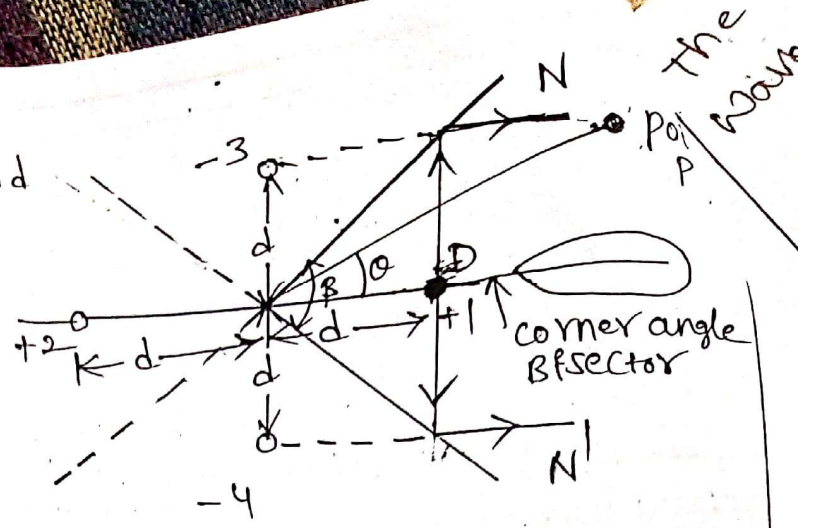 The
N
-3
Poi
P
d
d
θ
D
β
+2
d
d
+1
corner angle
Bisector
d
N'
-4